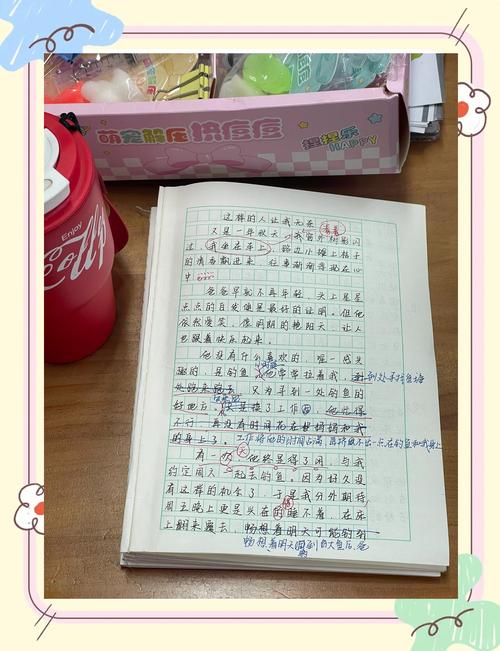 萌宠解压 挤痘痘
捏捏乐
HAPPY
Enjoy
这样的人让我无奈
又是一年秋天，我窗外树影闪
过，我坐在车上，路边小摊上桔子
的清香飘进来，往事渐渐浮现在心
中。
爸爸早就不再年轻，头上星星
点点的白发便是最好的证明。但他
依然爱笑，像明朗的艳阳天，让人
也跟着快乐起来。
他没有什么喜欢的，唯一感兴
趣的，是钓鱼，他常常拉着我，到处寻找鱼塘
处跑来跑去，又为寻到一处钓鱼的
好地后，又是换了工作，他忙得
不行，再没有时间花在
的身上了，工作将他的时间占满，再挤不出一点在钓鱼和我身上
有一天，他终于得了闲，与我
约定周六一起去钓鱼。因为好久没
有这样的机会了，于是我分外期待，
周五晚上更是兴奋的睡不着，在床
上翻来覆去，畅想着明天可能钓到
畅想着明天钓到白大鱼后，爸